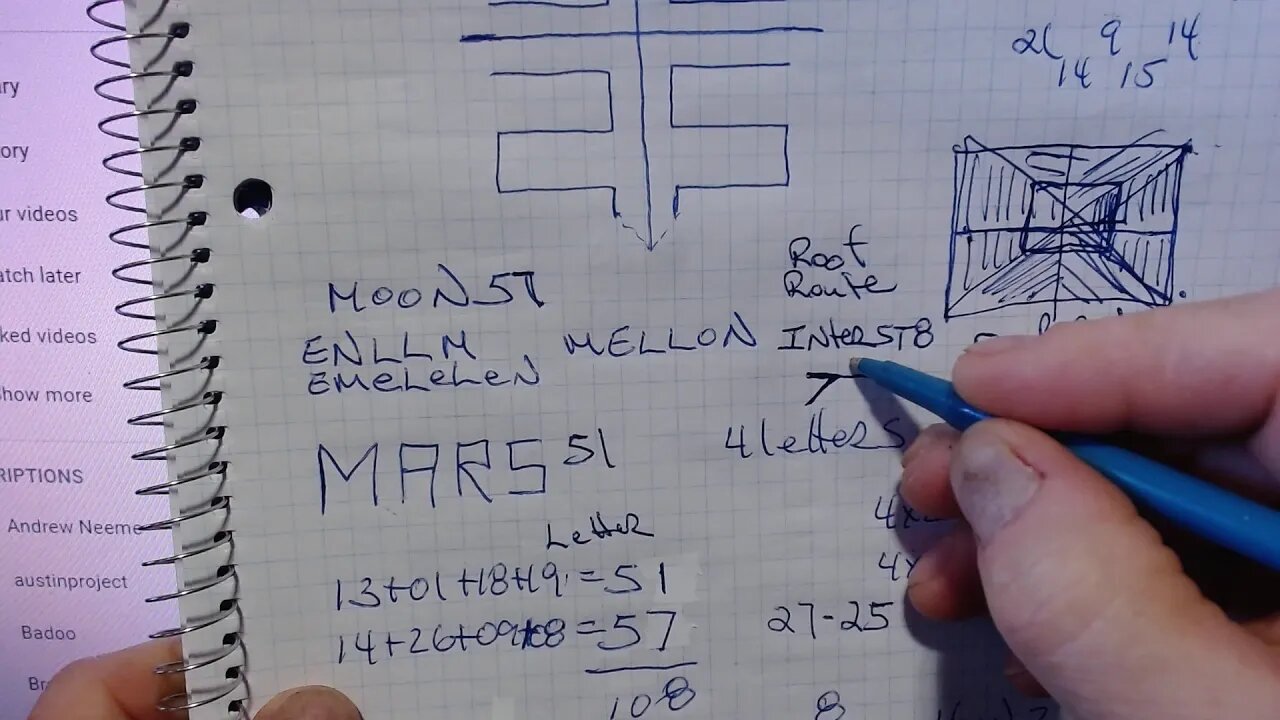 21 9 14
14 15
Root
Route
MOON 57
ENLLM MELLON INterST8
EMeLeLeN
MARS 51
4 letters
Letter
13+01+18+19=51
14+26+09+08=57
27-25
108
8
ry
ory
ur videos
atch later
ked videos
how more
RIPTIONS
Andrew Neeme
austinproject
Badoo